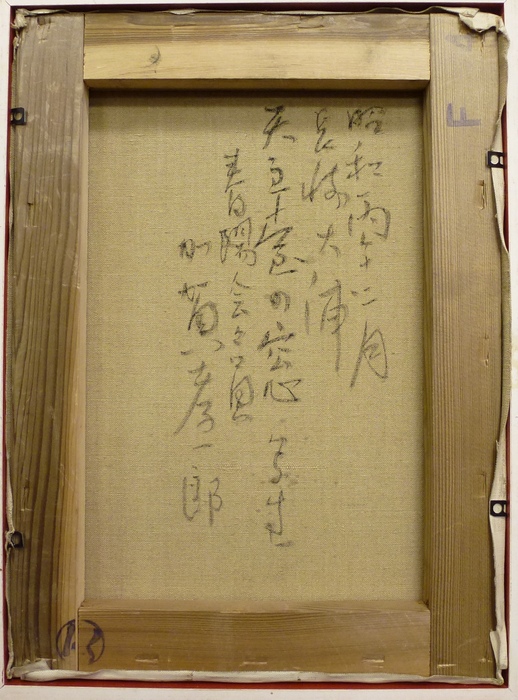 昭和丙午二月
長崎大浦
天主堂の窓 写生
春陽会々員
加賀孝一郎
F